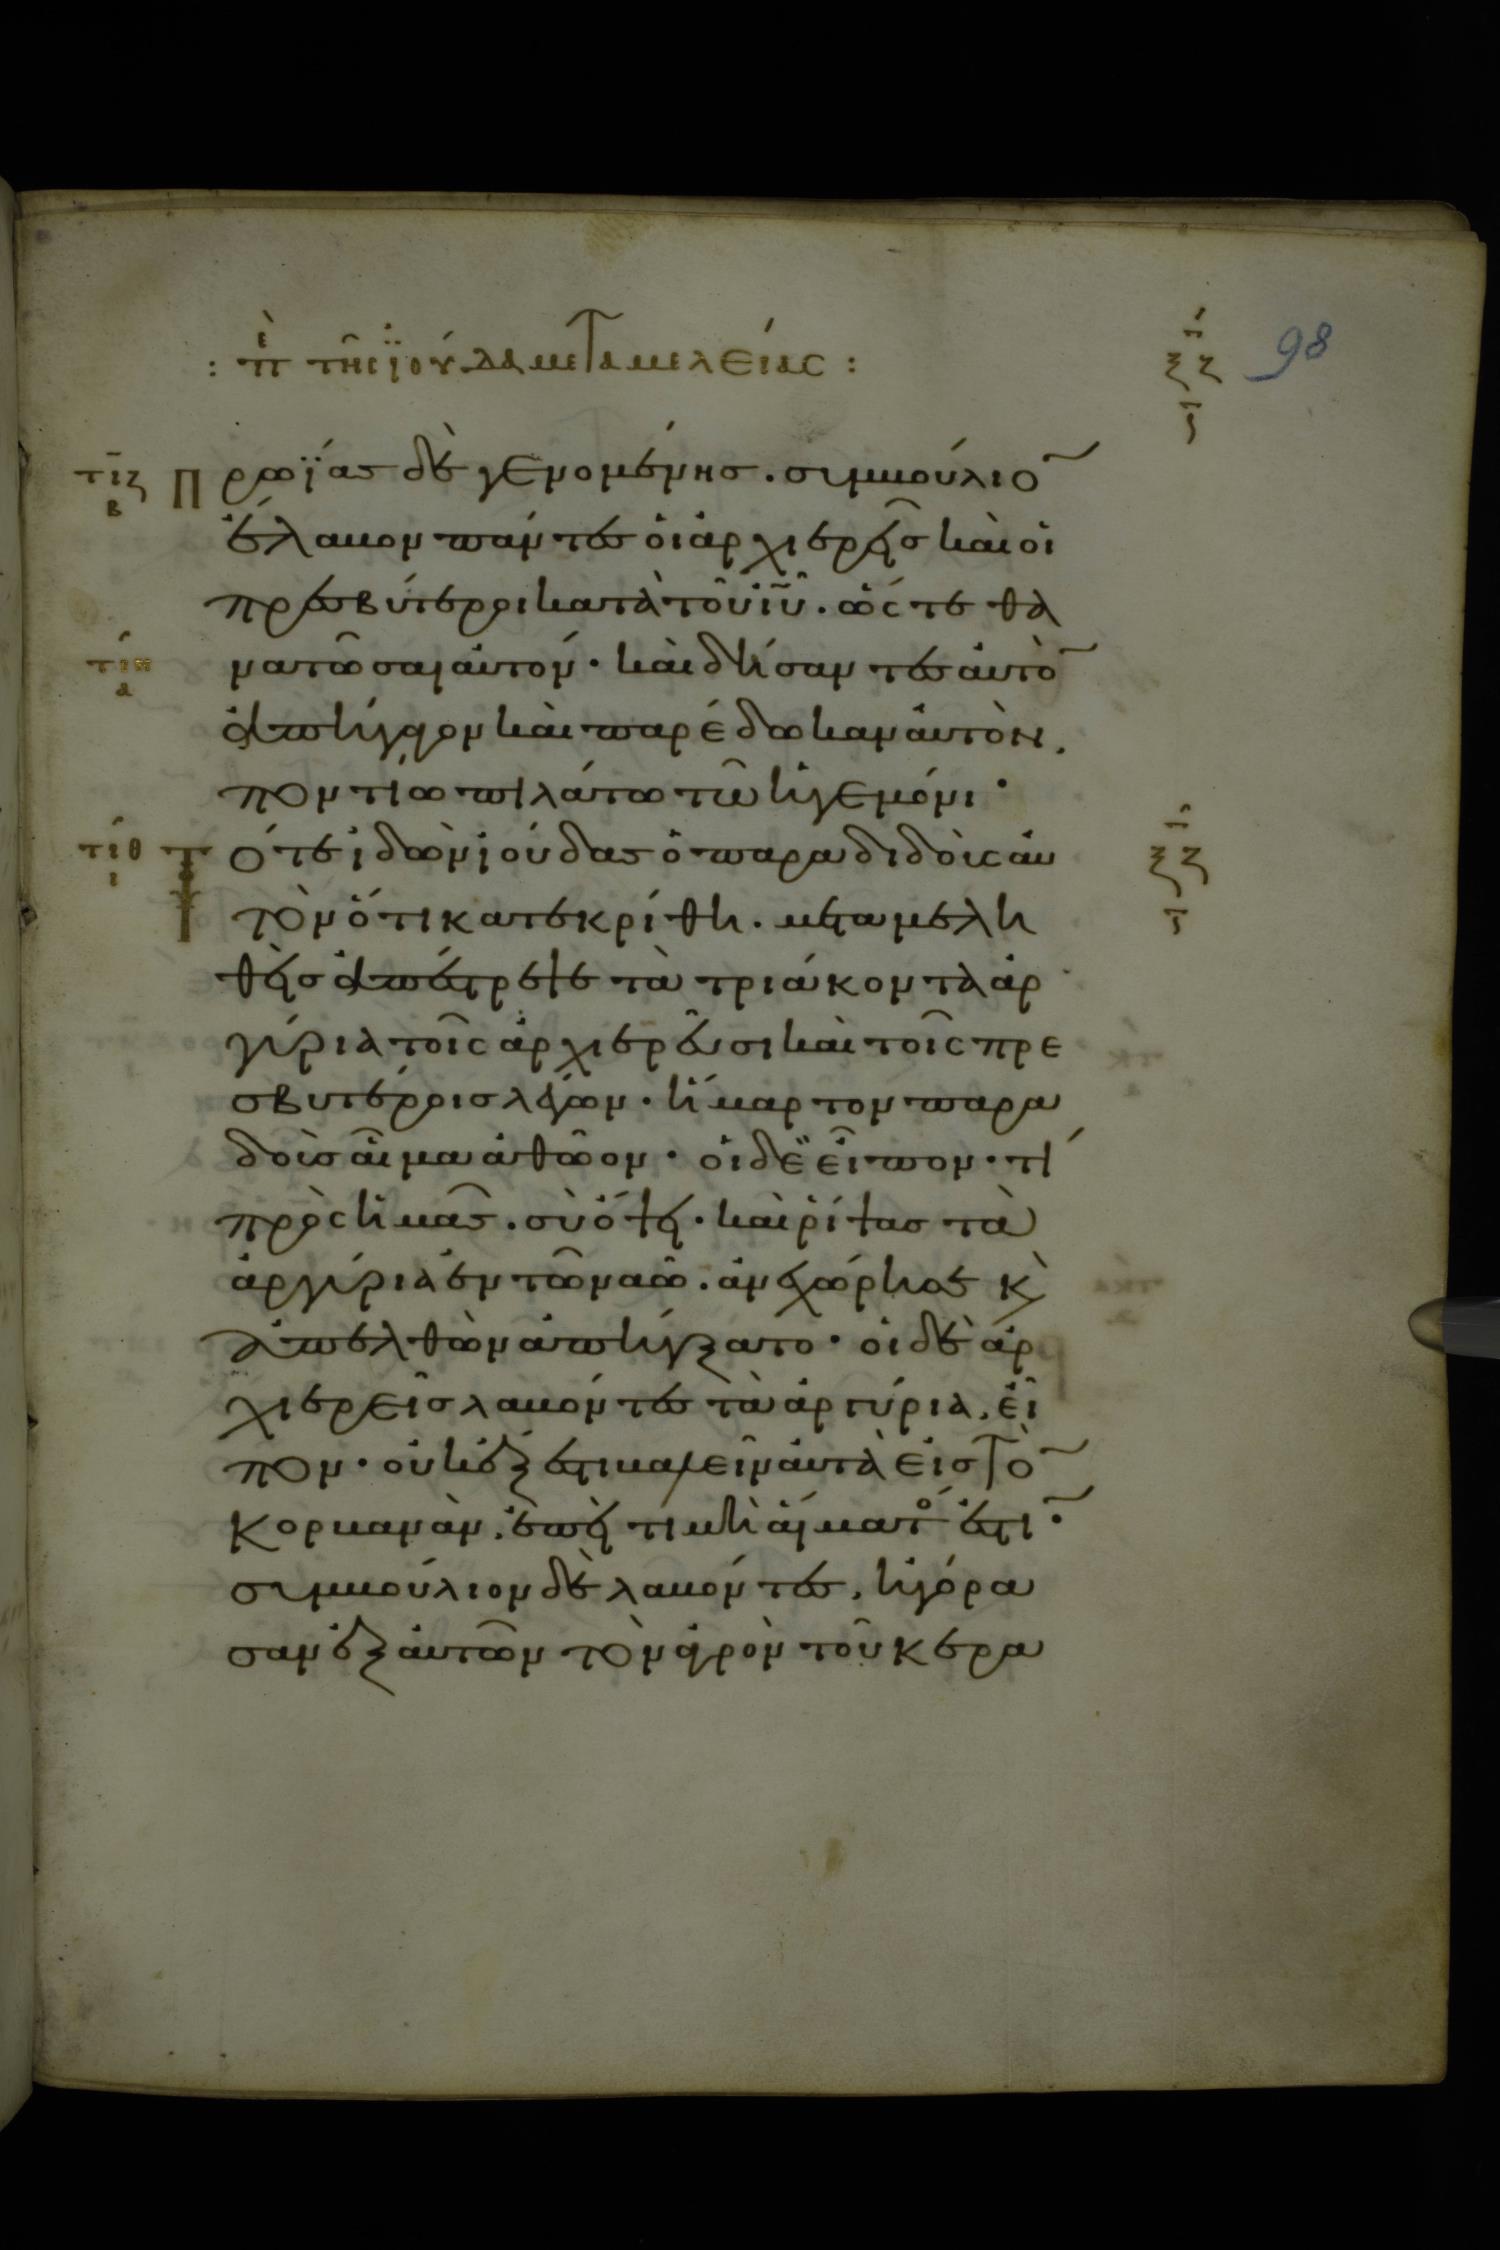 : πε τῆς ϊούδα μεταμελείας :
98
ξζ
τιζ β Πρωϊας δὲ γενομένης . συμβούλιο̅
ἔλαβον πάντες οἱ ἀρχιερεῖς καὶ οἱ
πρεσβύτεροι κατὰ τοῦ ἰῦ . ὥστε θα
τιη α νατῶσαι αὐτόν · καὶ δήσαντες αὐτὸ̅
ἀπήγαγον καὶ παρέδωκαν αὐτὸν .
ποντίω πιλάτω τῶ ἡγεμόνι ·
τιθ ι Τότε ἰδὼν ἰούδας ὁ παραδιδοὺς αὐ
ξζ
τὸν ὅτι κατεκρίθη . μεταμελη
θεὶς ἀπέστρεψε τὰ τριάκοντα ἀρ
γύρια τοῖς ἀρχιερεῦσι καὶ τοῖς πρε
σβυτέροις λέγων · ἥμαρτον παρα
δοὺς αἷμα ἀθῶον · οἱ δὲ εἶπον · τί
πρὸς ἡμᾶς . σὺ ὄψει · καὶ ῥίψας τὰ
ἀργύρια ἐν τῶ ναῶ . ἀνεχώρησε κ̀
ἀπελθὼν ἀπήγξατο · οἱ δὲ ἀρ
χιερεῖς λαβόντες τὰ ἀργύρια . εἶ
πον · οὐκ ἔξεστι βαλεῖν αὐτὰ εἰς τὸ̅
κορβανὰν . ἐπεὶ τιμὴ αἵματός ἐστι ·
συμβούλιον δὲ λαβόντες . ἠγόρα
σαν ἐξ αὐτῶν τὸν ἀγρὸν τοῦ κερα